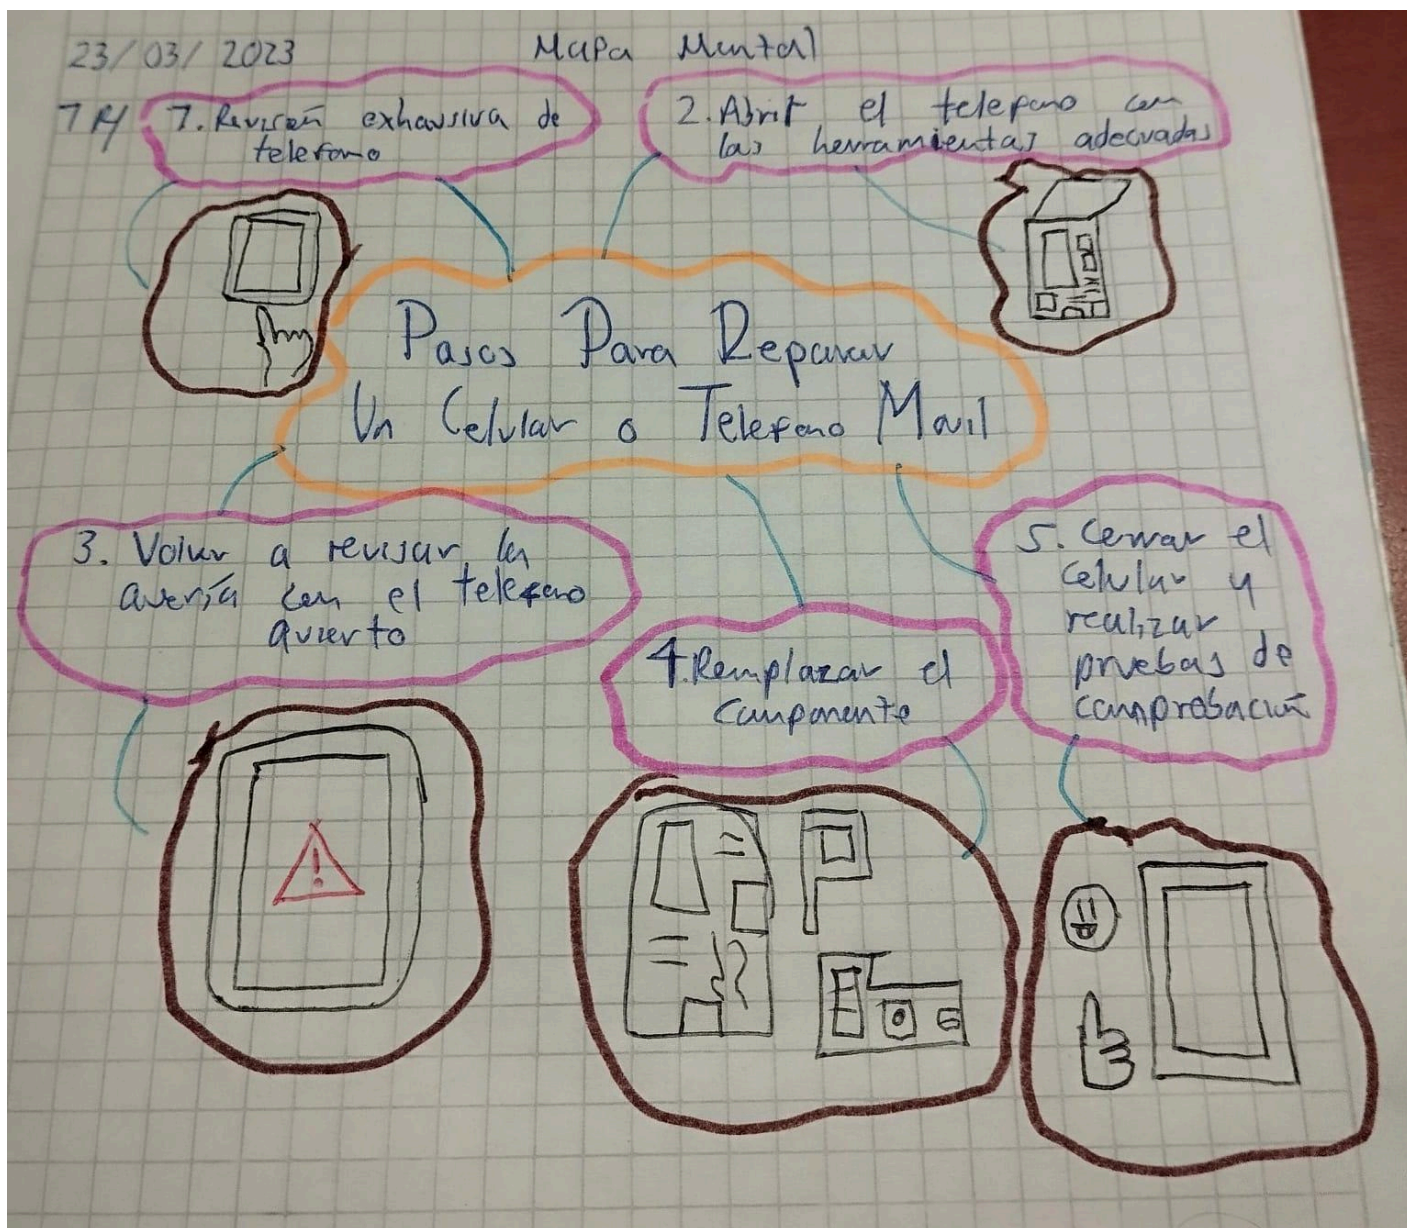 23/03/2023 Mapa Mental
1. Revisión exhausiva de
telefono
2. Abrir el telefono con
las herramientas adecuadas
Pasos Para Reparar
Un Celular o Telefono Movil
3. Volver a revisar la
avería con el telefono
avierto
4. Remplazar el
componente
5. Cerrar el
celular y
realizar
pruebas de
comprobación
!